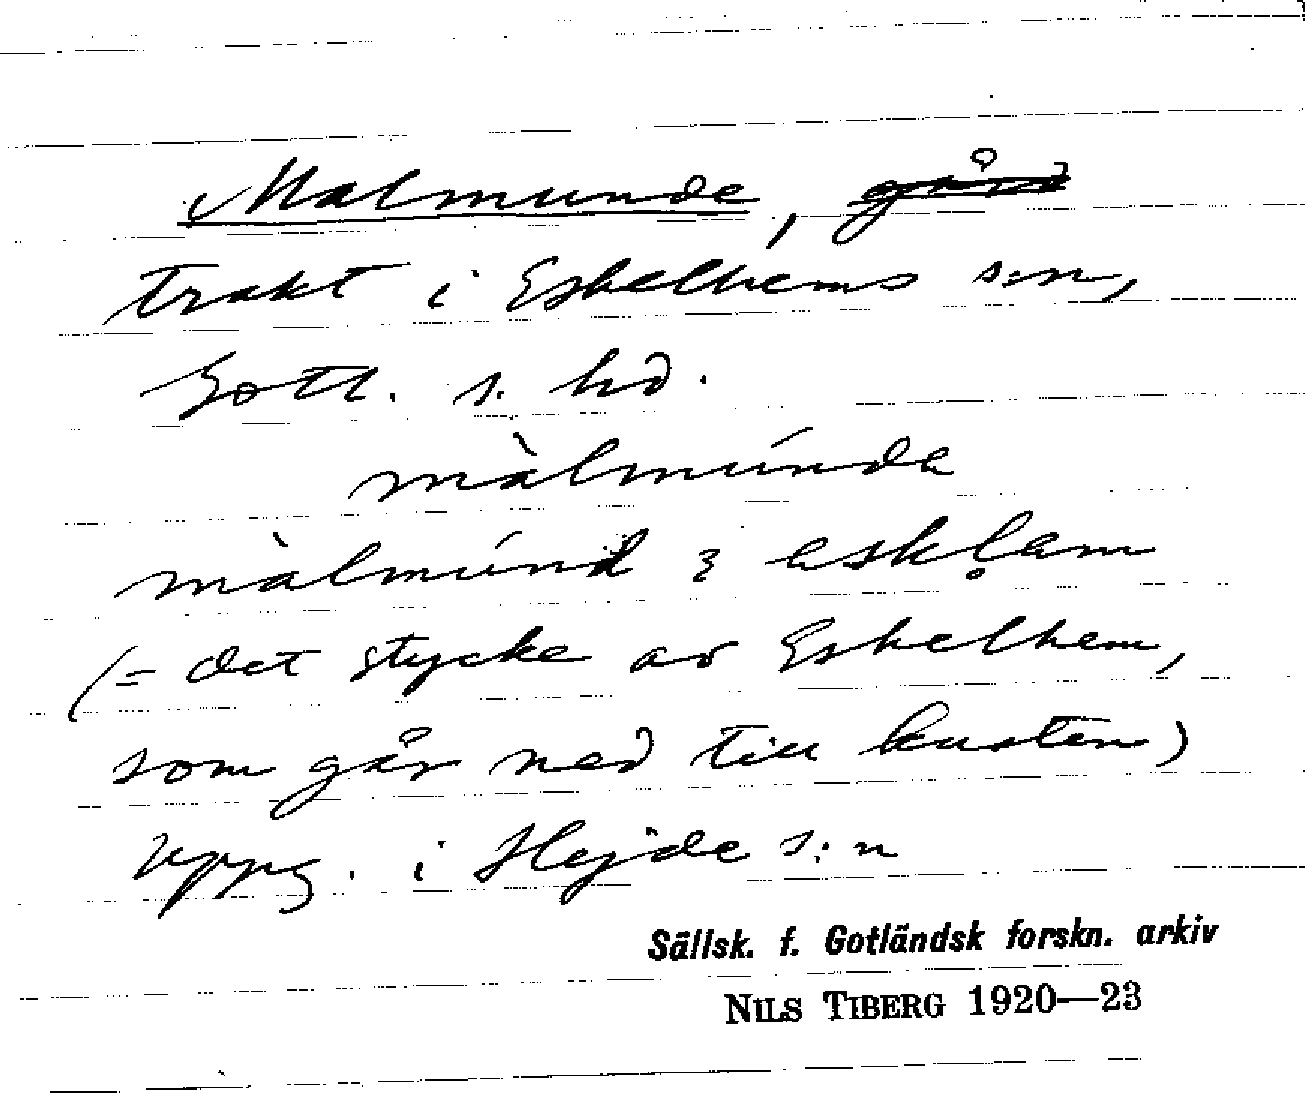 Malmunde, gård
trakt i Eskelhems s:n,
Gotl. s. hd.
màlmúnde
màlmúnd i eskl̥am
(= det stycke av Eskelhem,
som går ned till kusten)
Uppg. i Hejde s:n
Sällsk. f. Gotländsk forskn. arkiv
NILS TIBERG 1920—23